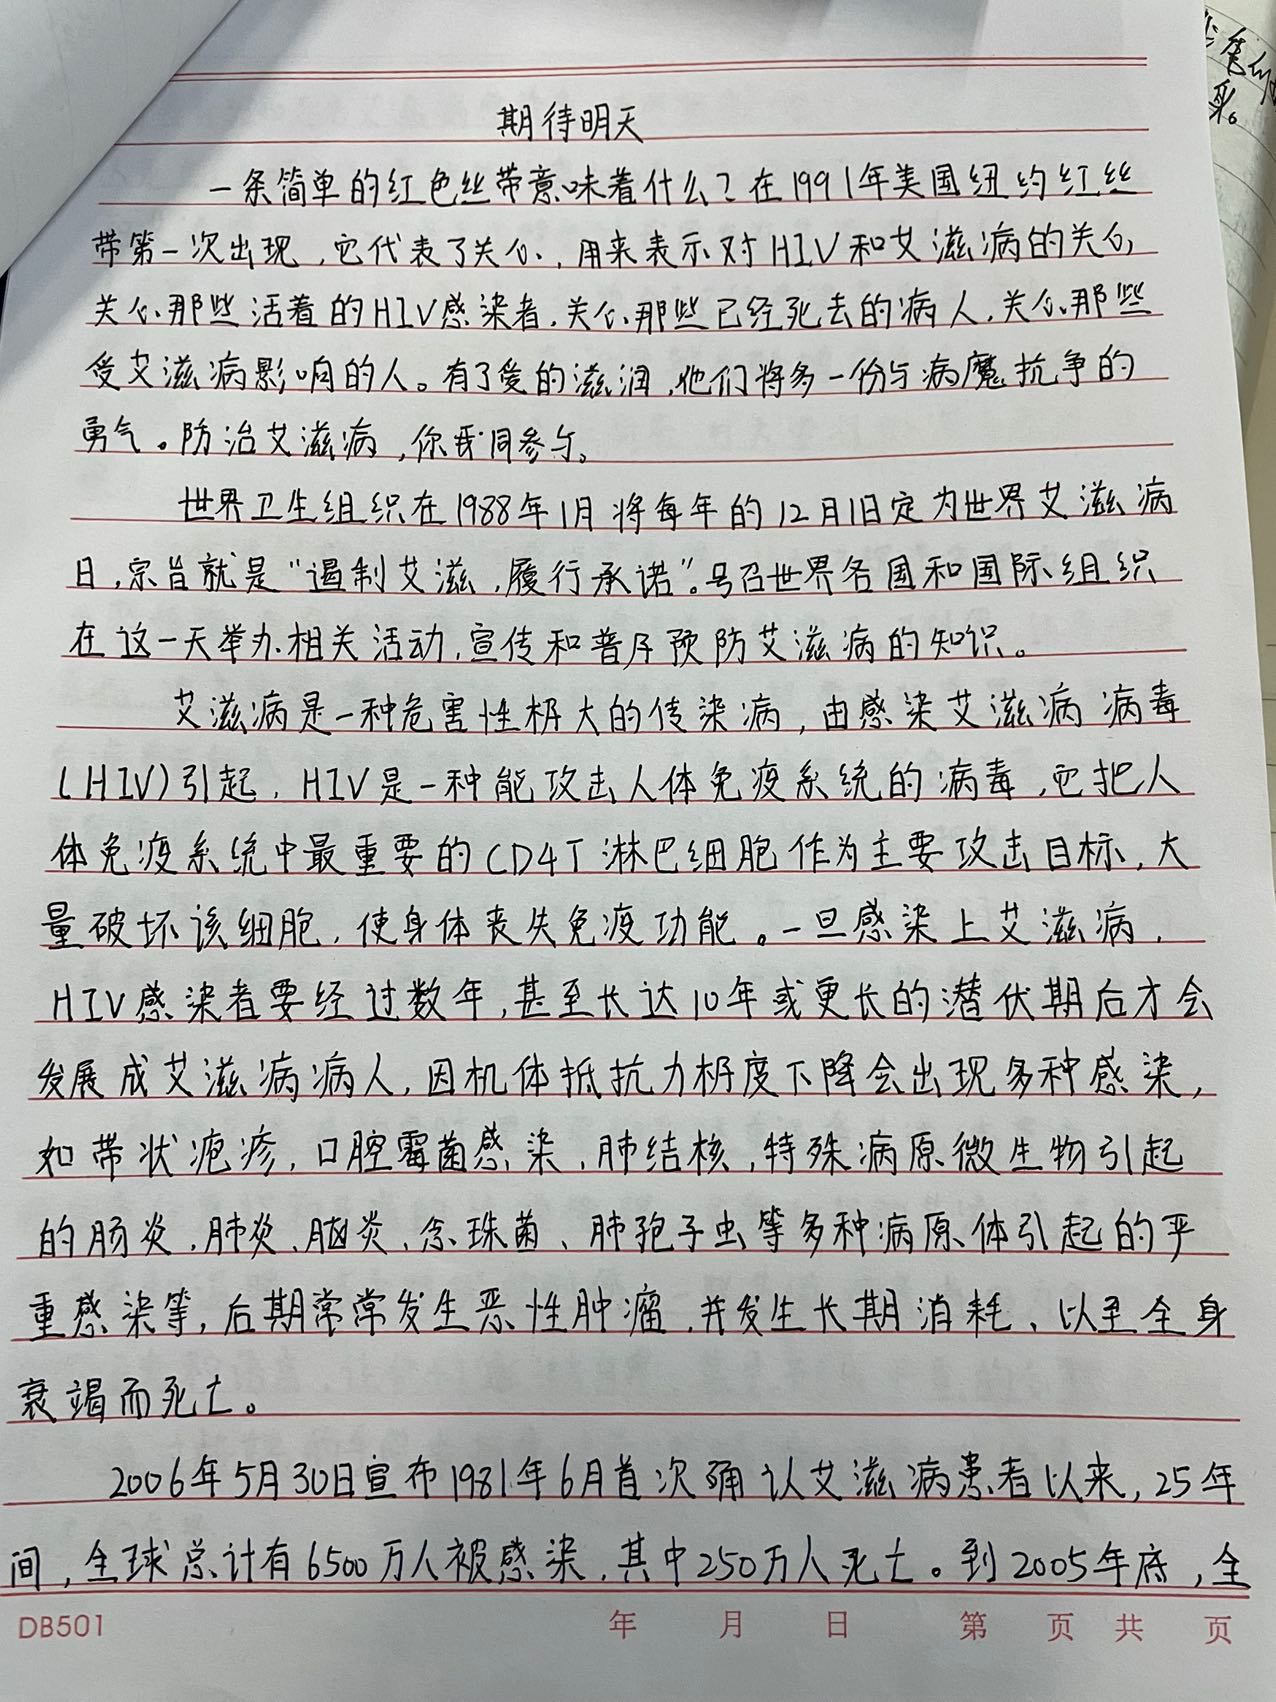 期待明天
一条简单的红色丝带意味着什么？在1991年美国纽约红丝
带第一次出现，它代表了关心，用来表示对HIV和艾滋病的关心，
关心那些活着的HIV感染者，关心那些已经死去的病人，关心那些
受艾滋病影响的人。有了爱的滋润，他们将多一份与病魔抗争的
勇气。防治艾滋病，你我同参与。
世界卫生组织在1988年1月将每年的12月1日定为世界艾滋病
日，宗旨就是“遏制艾滋，履行承诺”。号召世界各国和国际组织
在这一天举办相关活动，宣传和普及预防艾滋病的知识。
艾滋病是一种危害性极大的传染病，由感染艾滋病病毒
(HIV)引起，HIV是一种能攻击人体免疫系统的病毒，它把人
体免疫系统中最重要的CD4T淋巴细胞作为主要攻击目标，大
量破坏该细胞，使身体丧失免疫功能。一旦感染上艾滋病，
HIV感染者要经过数年，甚至长达10年或更长的潜伏期后才会
发展成艾滋病病人，因机体抵抗力极度下降会出现多种感染，
如带状疱疹，口腔霉菌感染，肺结核，特殊病原微生物引起
的肠炎、肺炎、脑炎、念珠菌、肺孢子虫等多种病原体引起的严
重感染等，后期常常发生恶性肿瘤，并发生长期消耗，以至全身
衰竭而死亡。
2006年5月30日宣布1981年6月首次确认艾滋病患者以来，25年
间，全球总计有6500万人被感染，其中250万人死亡。到2005年底，全
DB501 年 月 日 第 页 共 页
身。